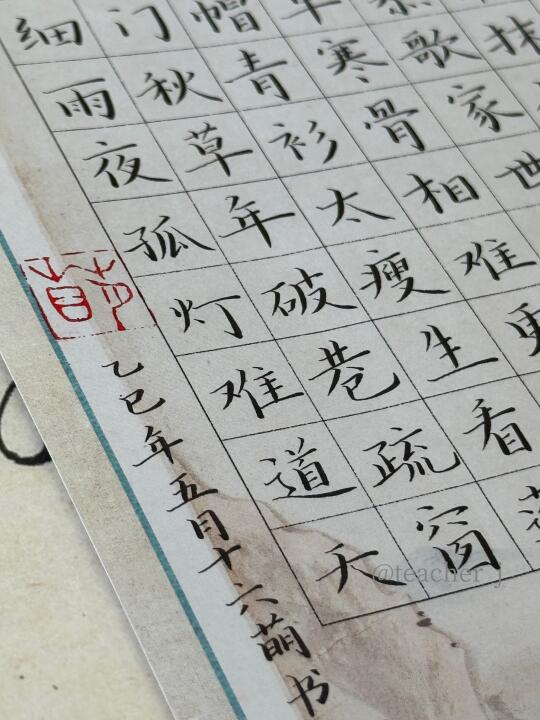 歌家世
寒骨相难更
帽青衫太瘦生看
门秋草年破巷疏窗
细雨夜孤灯难道天
乙巳年五月十六萌书
@teacher j